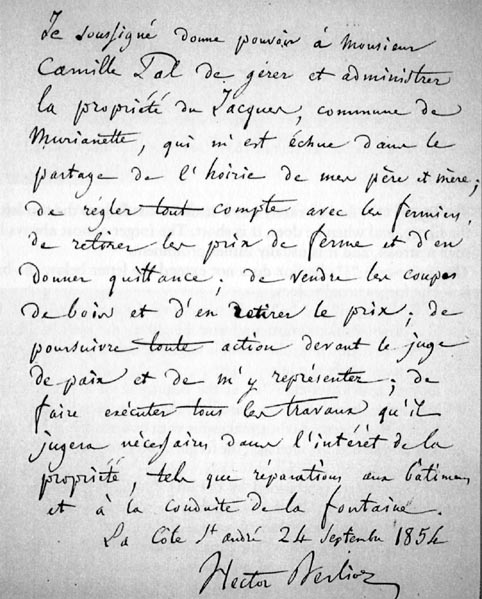 Je soussigné donne pouvoir à Monsieur
Camille Pal de gérer et administrer
la propriété du Jacques, commune de
Murianette, qui m'est échue dans le
partage de l'hoirie de mes père et mère;
de régler tout compte avec les fermiers,
de retirer les prix de ferme et d'en
donner quittance; de vendre les coupes
de bois et d'en retirer le prix; de
poursuivre toute action devant le juge
de paix et de m'y représenter; de
faire exécuter tous les travaux qu'il
jugera nécessaires dans l'intérêt de la
propriété, tels que réparations aux bâtimens
et à la conduite de la fontaine.
La Côte St André 24 Septembre 1854
Hector Berlioz